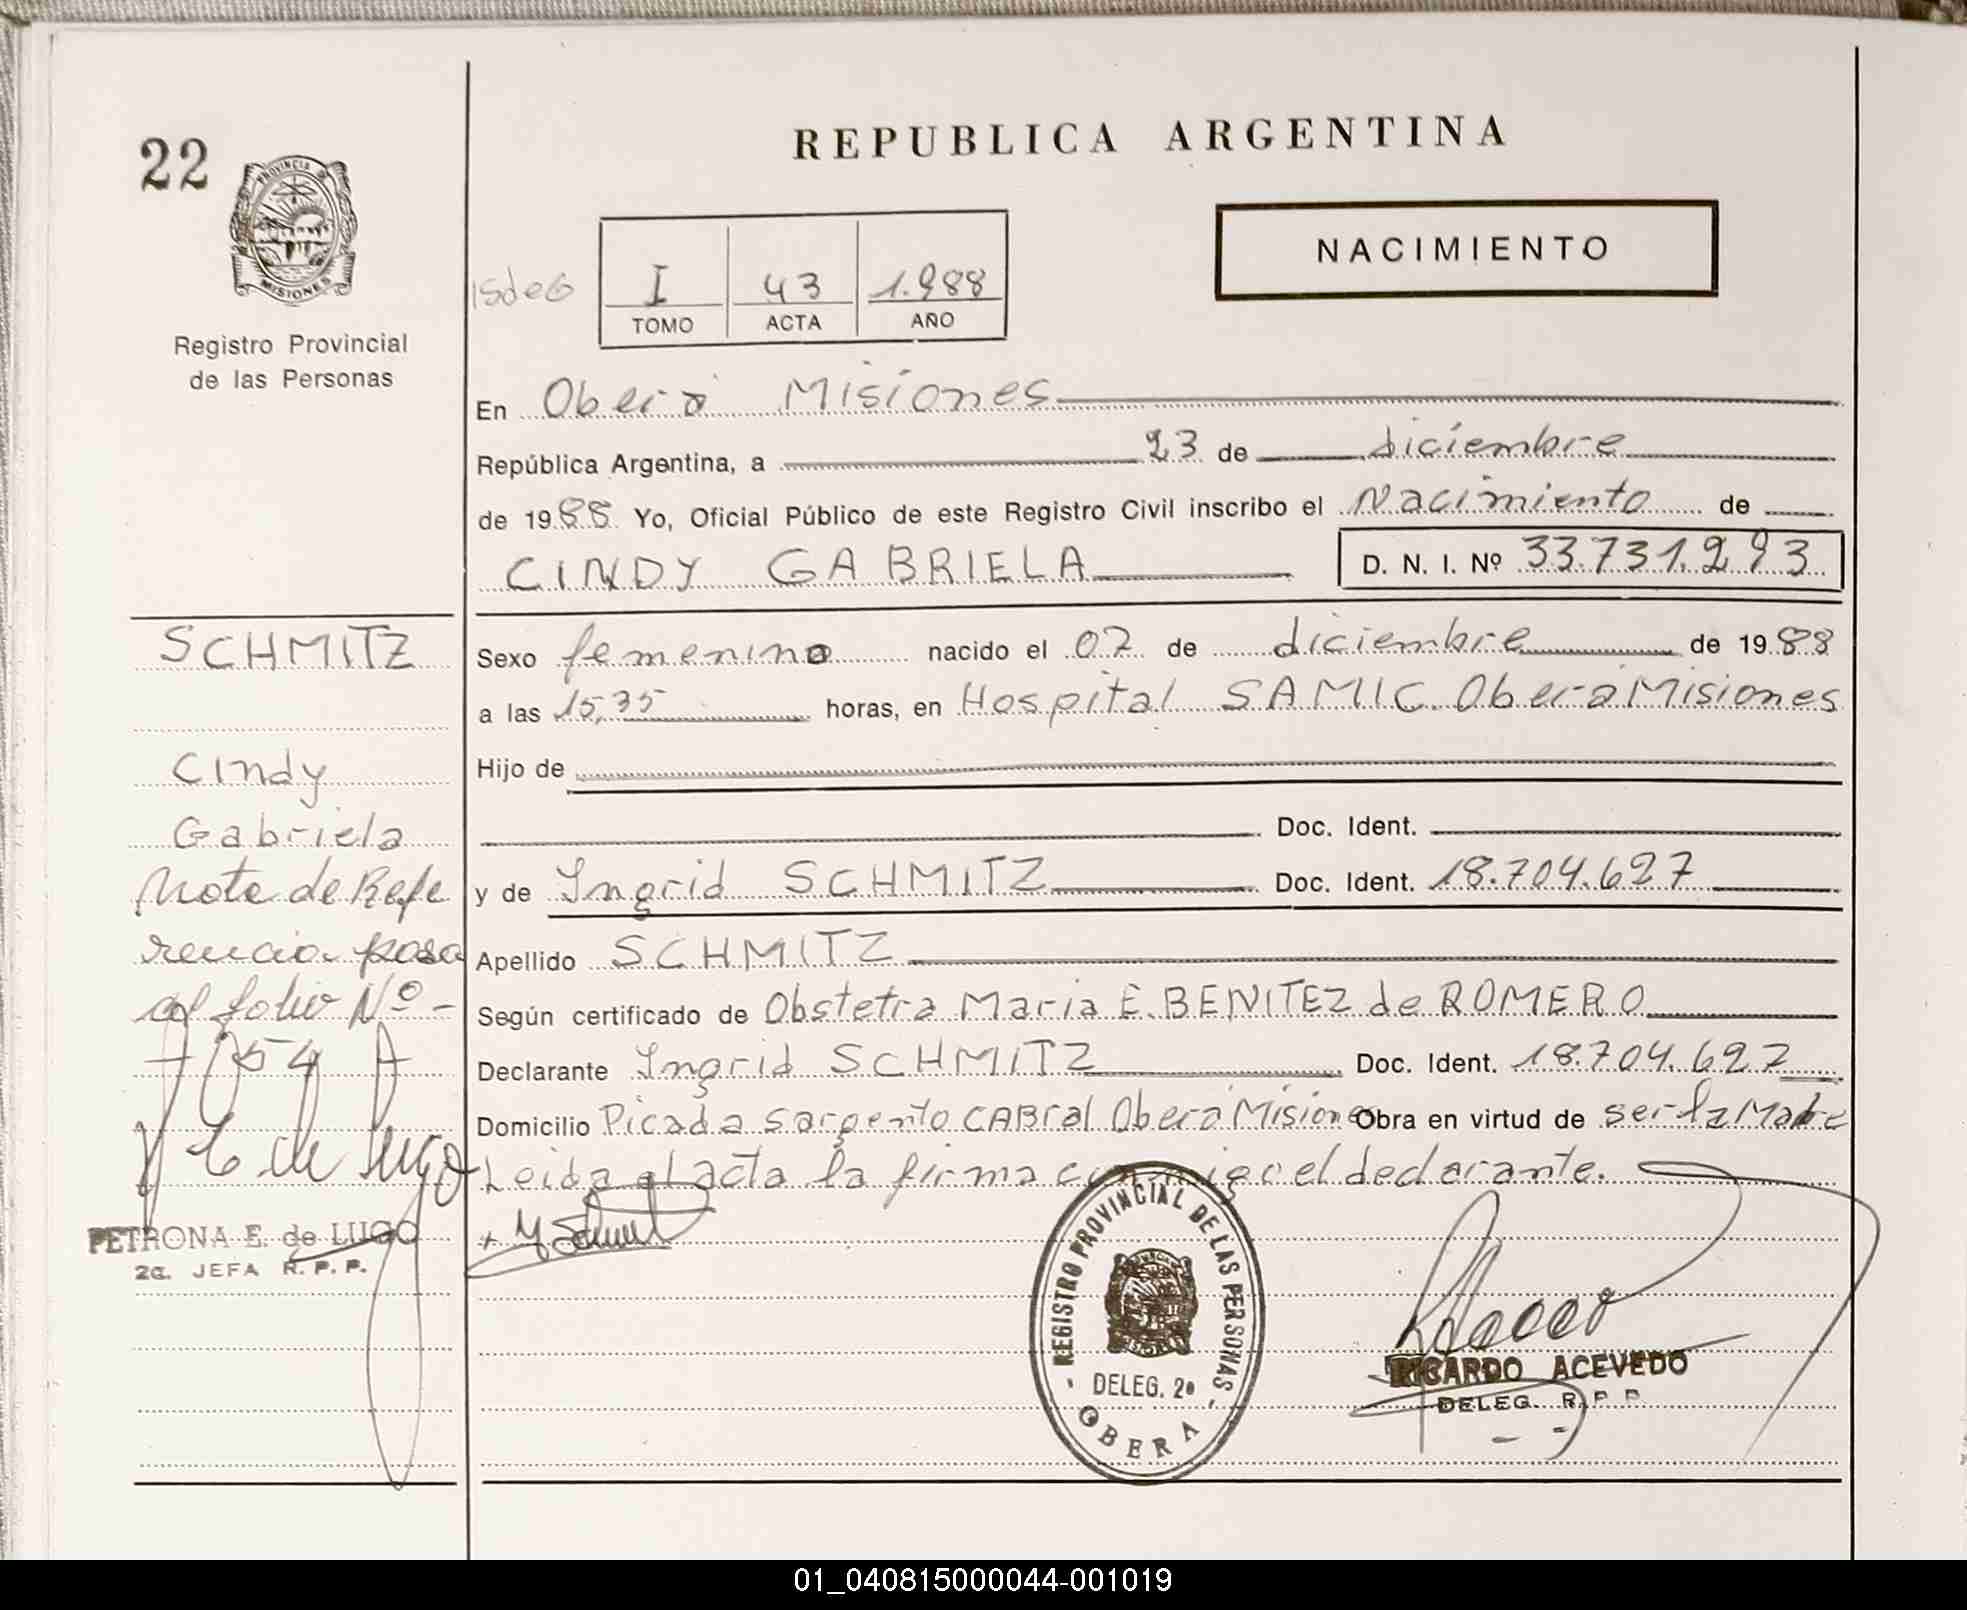 22
PROVINCIA DE
MISIONES
Registro Provincial
de las Personas
REPUBLICA ARGENTINA
NACIMIENTO
I 43 1.988
TOMO ACTA AÑO
En Oberá Misiones
República Argentina, a 23 de diciembre
de 1988 Yo, Oficial Público de este Registro Civil inscribo el Nacimiento de
CINDY GABRIELA D. N. I. Nº 33.731.293
SCHMITZ
Cindy
Gabriela
Nota de Refe
rencia pasa
al folio Nº -
154
P E de Lugo
PETRONA E. de LUGO
2a. JEFA R. P. P.
Sexo femenino nacido el 02 de diciembre de 1988
a las 15,35 horas, en Hospital SAMIC. Oberá Misiones
Hijo de
Doc. Ident.
y de Ingrid SCHMITZ Doc. Ident. 18.704.627
Apellido SCHMITZ
Según certificado de Obstetra Maria E. BENITEZ de ROMERO
Declarante Ingrid SCHMITZ Doc. Ident. 18.704.627
Domicilio Picada Sargento CABral Oberá Misiones Obra en virtud de ser la Madre
Leida el acta la firma conmigo el declarante.
REGISTRO PROVINCIAL DE LAS PERSONAS
DELEG. 2ª
OBERA
RICARDO ACEVEDO
DELEG. R. P. P.
01_040815000044-001019